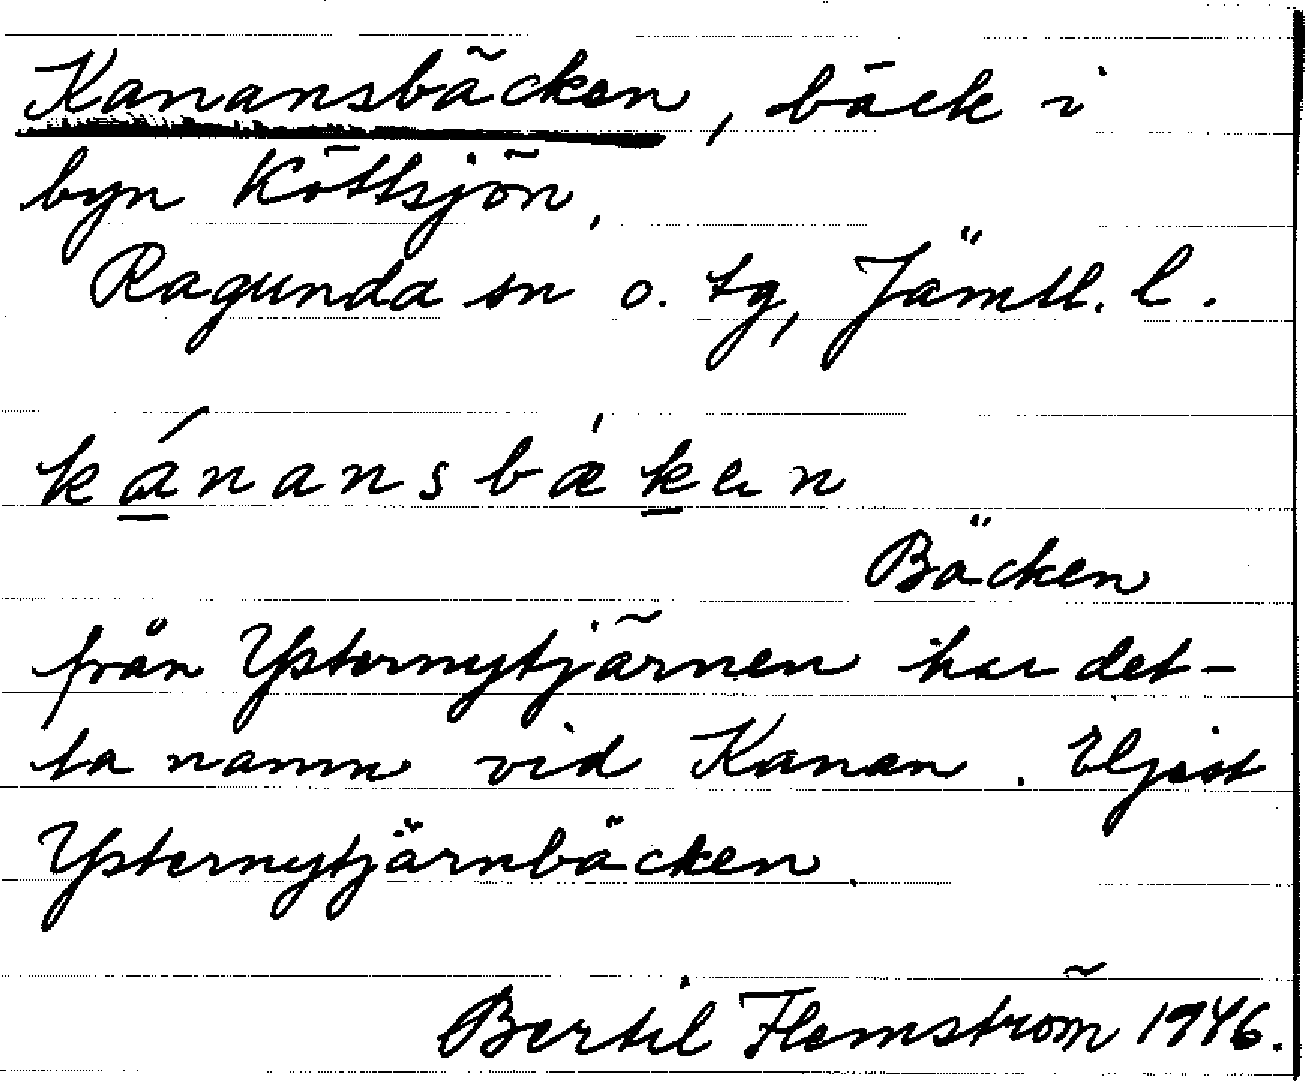 Kanansbäcken, bäck i
byn Köttsjön,
Ragunda sn o. tg, Jämtl. l.
kánansbæken
Bäcken
från Ysternytjärnen har det-
ta namn vid Kanan. Eljest
Ysternytjärnbäcken.
Bertil Flemström 1946.